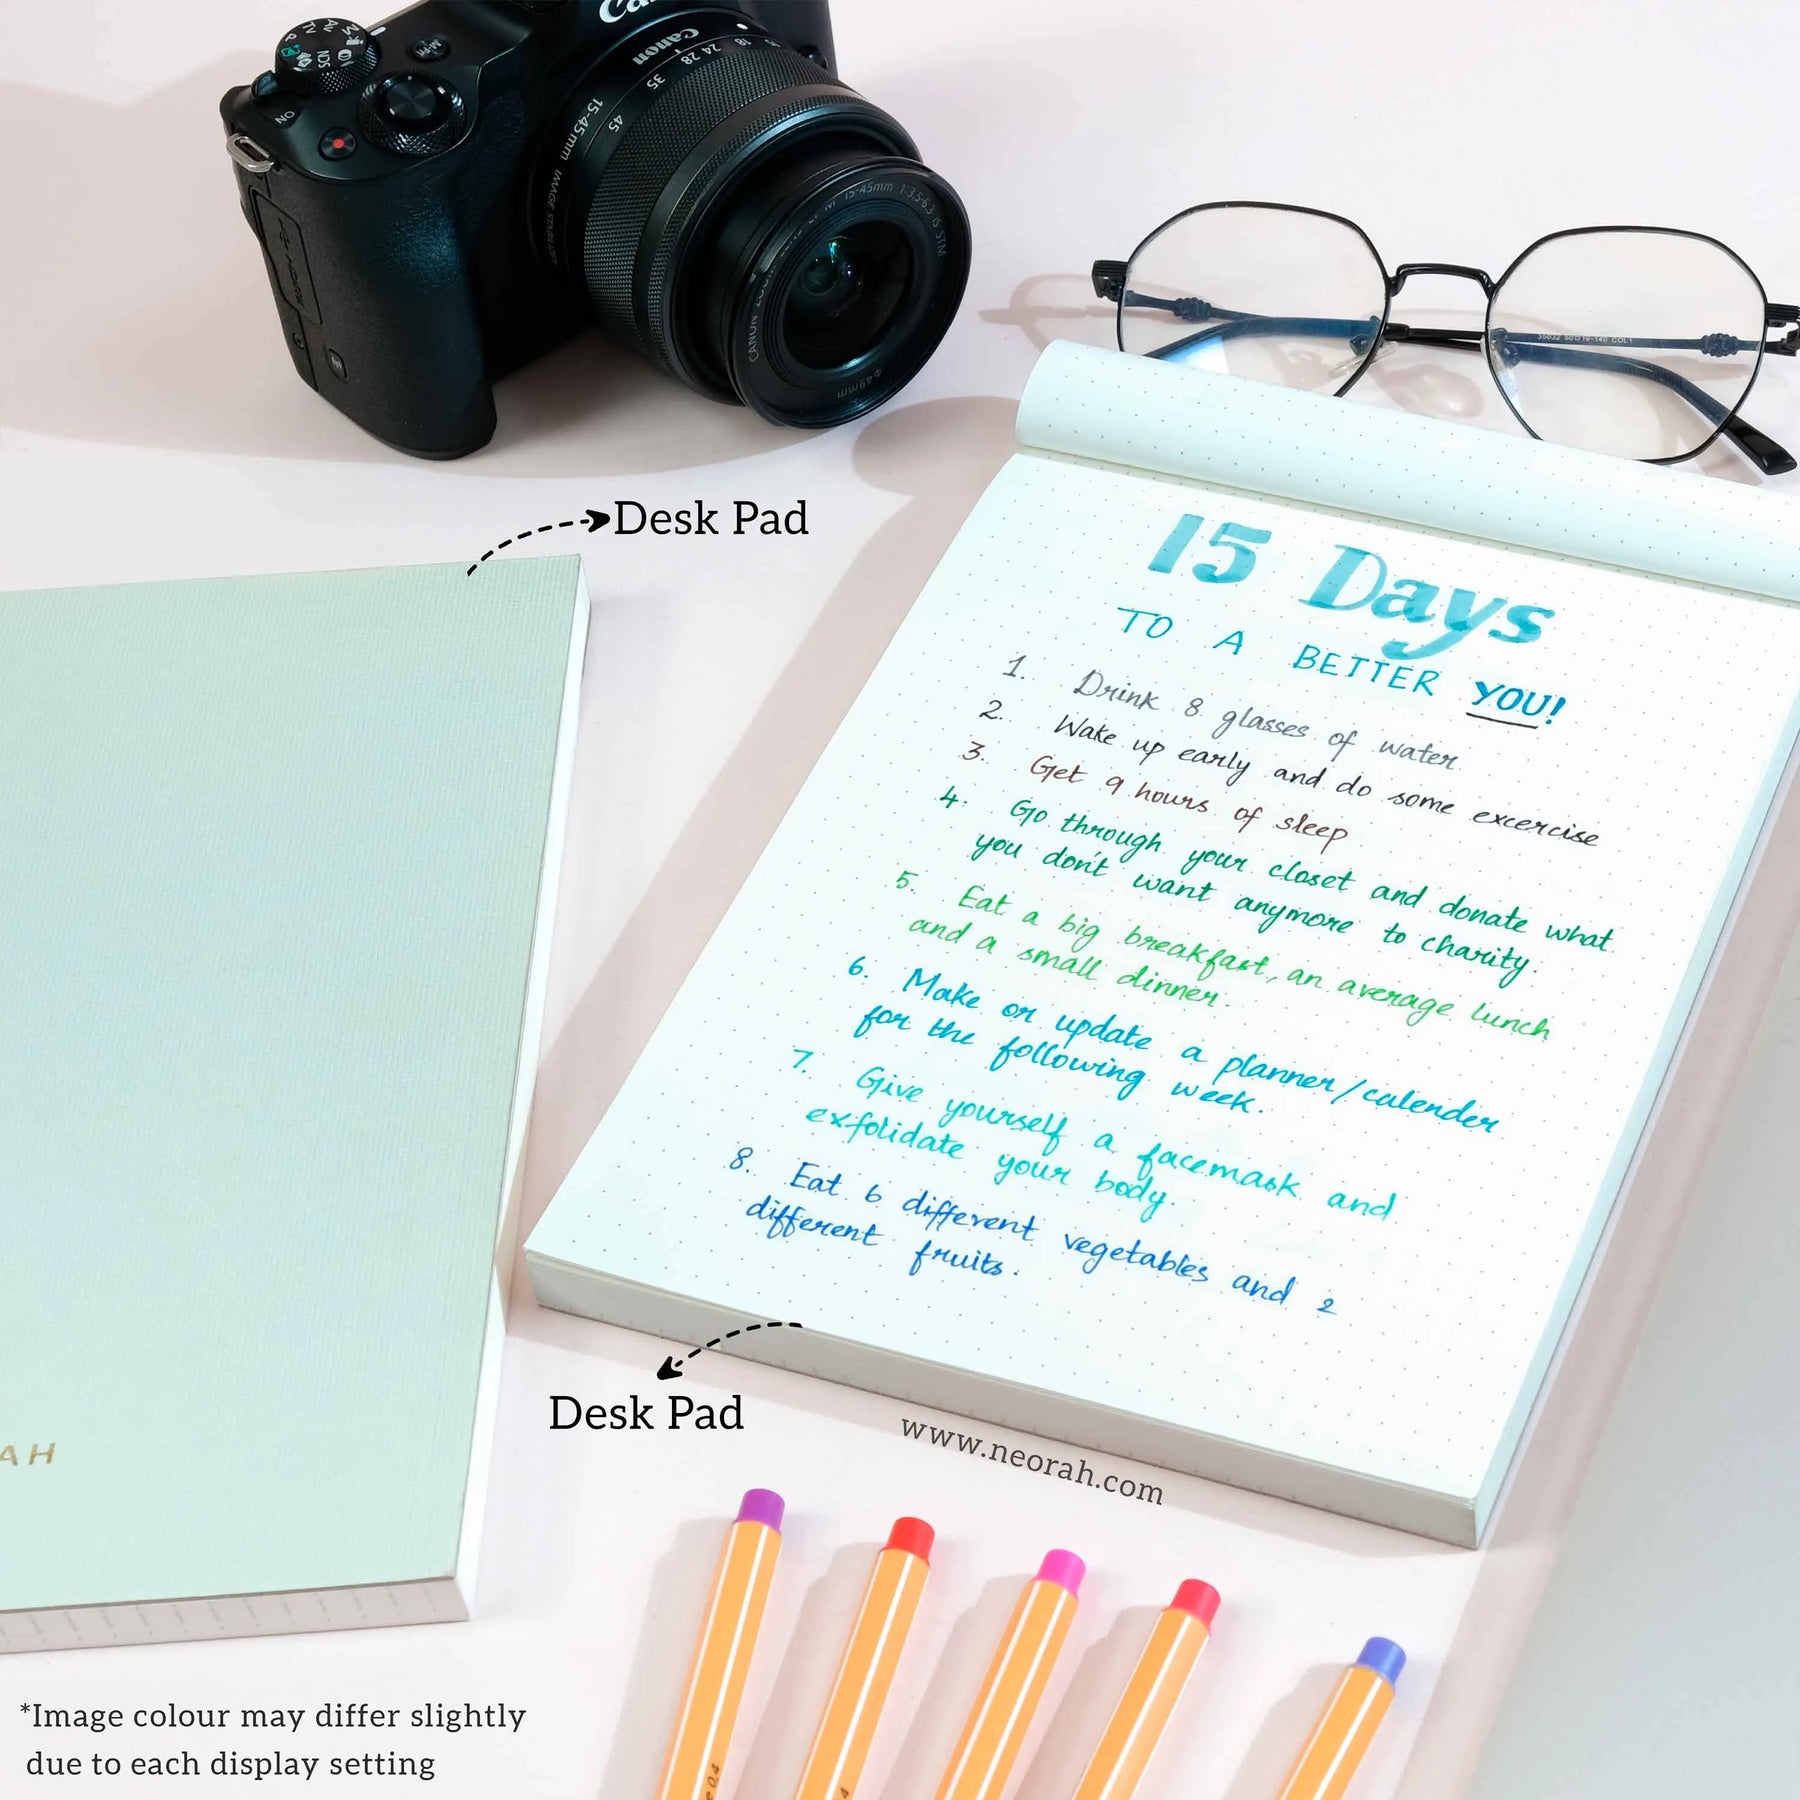 Canon
M-Fn
ON
45 35 28 24 18
15-45mm IMAGE STABILIZER
15-45mm 1:3.5-6.3 IS STM
ø49mm
Desk Pad
15 Days
TO A BETTER YOU!
1. Drink 8 glasses of water
2. Wake up early and do some excercise
3. Get 9 hours of sleep
4. Go through your closet and donate what
you don't want anymore to charity.
5. Eat a big breakfast, an average lunch
and a small dinner.
6. Make or update a planner/calender
for the following week.
7. Give yourself a facemask and
exfolidate your body.
8. Eat 6 different vegetables and 2
different fruits.
Desk Pad
www.neorah.com
AH
*Image colour may differ slightly
due to each display setting